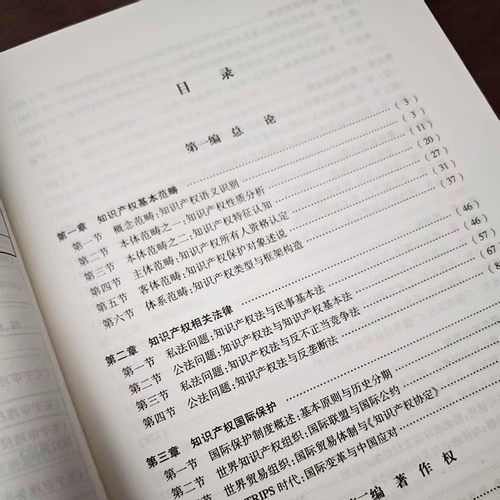 目 录
第一编 总 论
第一章 知识产权基本范畴 (3)
第一节 概念范畴:知识产权语义识别 (3)
第二节 本体范畴之一:知识产权性质分析 (11)
第三节 本体范畴之二:知识产权特征认知 (20)
第四节 主体范畴:知识产权所有人资格认定 (27)
第五节 客体范畴:知识产权保护对象述说 (31)
第六节 体系范畴:知识产权类型与框架构造 (37)
第二章 知识产权相关法律 (46)
第一节 私法问题:知识产权法与民事基本法 (46)
第二节 公法问题:知识产权法与知识产权基本法 (57)
第三节 私法问题:知识产权法与反不正当竞争法
第四节 公法问题:知识产权法与反垄断法
第三章 知识产权国际保护
第一节 国际保护制度概述:基本原则与历史分期
第二节 世界知识产权组织:国际联盟与国际公约
世界贸易组织:国际贸易体制与《知识产权协定》
TRIPS时代:国际变革与中国应对
编 著 作 权